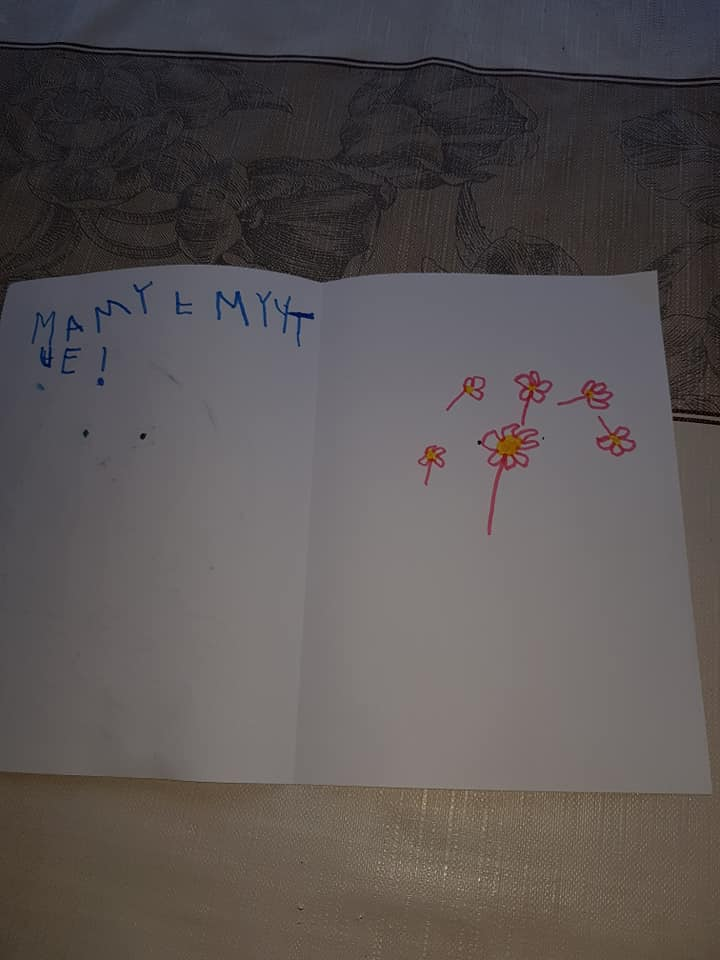 MAMY E MYYT
HE!